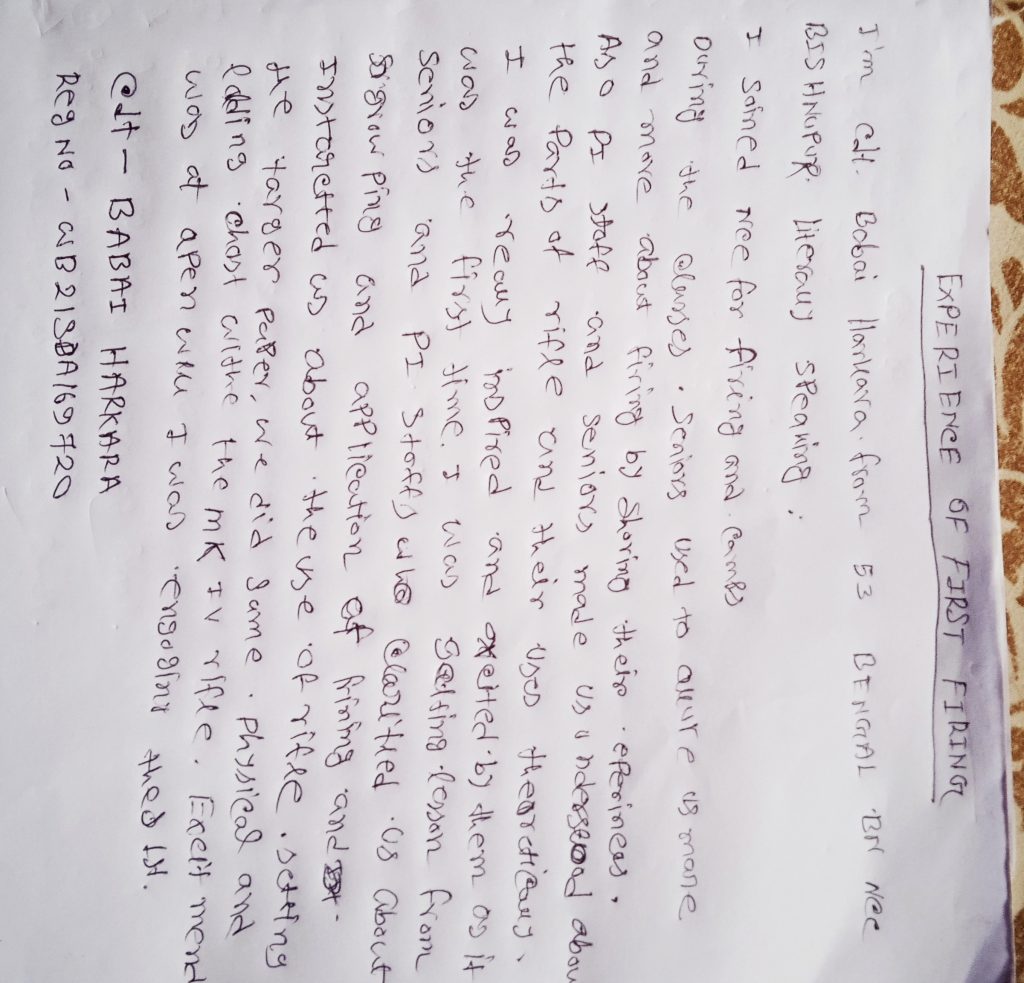 EXPERIENCE OF FIRST FIRING
I'm cdt. Babai Harkara. from 53 BENGAL BN NCC
BISHNUPUR. literally speaking :
I Joined ncc for firing and camps
During the classes. Seniors used to allure us more
and more about firing by sharing their
Also PI staff and seniors made us about
the Parts of rifle and their uses theoretically.
I was really inspired and by them as it
was the first time. I was getting lesson from
seniors and PI Staffs who us about
and application of firing and
us about the use of rifle. setting
the target paper, we did some physical and
the MK IV rifle. Excitmend
was at apen I was
the
cdt - BABAI HARKARA
Reg No - WB21SDA169720